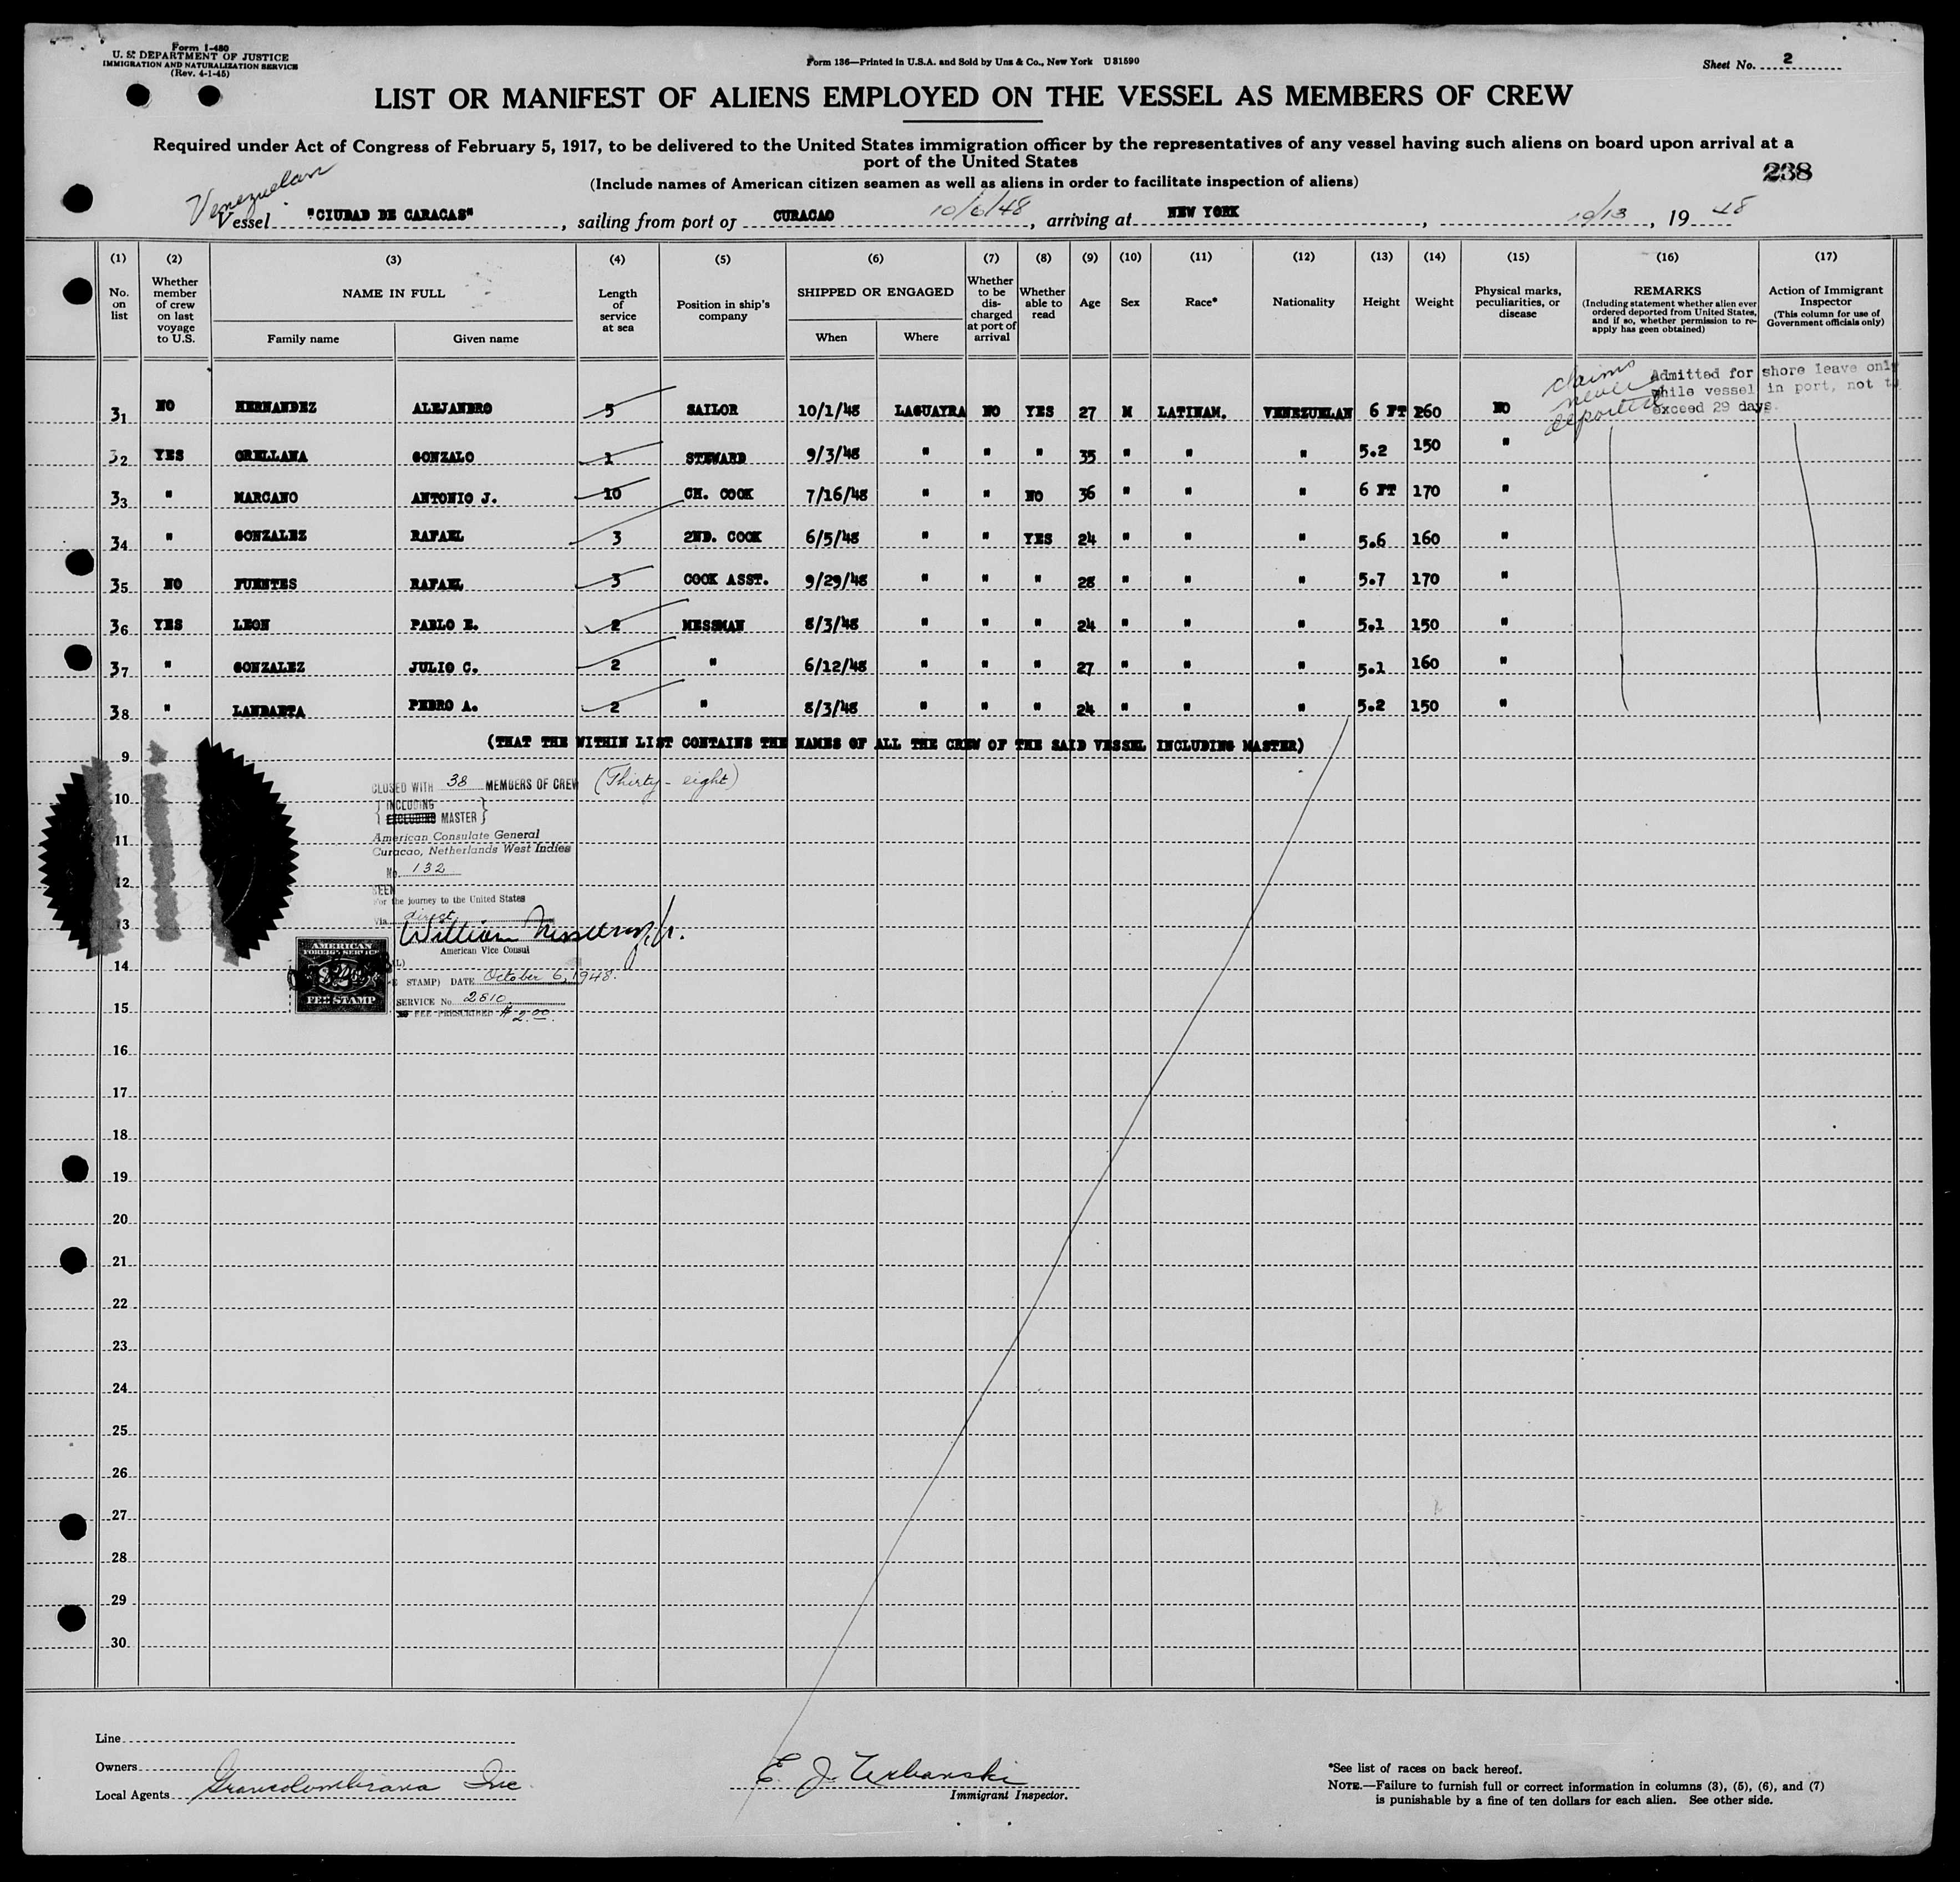 Form I-480
U. S. DEPARTMENT OF JUSTICE
IMMIGRATION AND NATURALIZATION SERVICE
(Rev. 4-1-45)
Form 136—Printed in U.S.A. and Sold by Unz & Co., New York U81590
Sheet No. 2
LIST OR MANIFEST OF ALIENS EMPLOYED ON THE VESSEL AS MEMBERS OF CREW
Required under Act of Congress of February 5, 1917, to be delivered to the United States immigration officer by the representatives of any vessel having such aliens on board upon arrival at a
port of the United States
238
(Include names of American citizen seamen as well as aliens in order to facilitate inspection of aliens)
Venezuelan
Vessel "CIUDAD DE CARACAS", sailing from port of CURACAO 10/6/48, arriving at NEW YORK, 10/13, 1948
(1) (2) (3) (4) (5) (6) (7) (8) (9) (10) (11) (12) (13) (14) (15) (16) (17)
No. on list
Whether member of crew on last voyage to U.S.
NAME IN FULL
Family name
Given name
Length of service at sea
Position in ship's company
SHIPPED OR ENGAGED
When
Where
Whether to be discharged at port of arrival
Whether able to read
Age
Sex
Race*
Nationality
Height
Weight
Physical marks, peculiarities, or disease
REMARKS
(Including statement whether alien ever ordered deported from United States, and if so, whether permission to re-apply has been obtained)
Action of Immigrant Inspector
(This column for use of Government officials only)
claims never deported
Admitted for shore leave only
while vessel in port, not to
exceed 29 days.
31 NO HERNANDEZ ALEJANDRO 5 SAILOR 10/1/48 LAGUAYRA NO YES 27 M LATINAM. VENEZUELAN 6 FT 260 NO
32 YES ORELLANA GONZALO 1 STEWARD 9/3/48 " " " 35 " " " 5.2 150 "
33 " MARCANO ANTONIO J. 10 CH. COOK 7/16/48 " " NO 36 " " " 6 FT 170 "
34 " GONZALEZ RAFAEL 3 2ND. COOK 6/5/48 " " YES 24 " " " 5.6 160 "
35 NO FUENTES RAFAEL 3 COOK ASST. 9/29/48 " " " 28 " " " 5.7 170 "
36 YES LEON PABLO E. 2 MESSMAN 8/3/48 " " " 24 " " " 5.1 150 "
37 " GONZALEZ JULIO C. 2 " 6/12/48 " " " 27 " " " 5.1 160 "
38 " LANDAETA PEDRO A. 2 " 8/3/48 " " " 24 " " " 5.2 150 "
(THAT THE WITHIN LIST CONTAINS THE NAMES OF ALL THE CREW OF THE SAID VESSEL INCLUDING MASTER)
9
CLOSED WITH 38 MEMBERS OF CREW (Thirty-eight)
10
INCLUDING
EXCLUDING MASTER
11
American Consulate General
Curacao, Netherlands West Indies
No. 132
12
SEEN
For the journey to the United States
Via direct
13
William
American Vice Consul
14
AMERICAN
FOREIGN SERVICE
FEE STAMP
STAMP) DATE October 6, 1948.
SERVICE No. 2810
15
FEE PRESCRIBED $2.00.
16
17
18
19
20
21
22
23
24
25
26
27
28
29
30
Line
Owners
Local Agents Grancolombiana Inc.
E. J. Urbanski
Immigrant Inspector.
*See list of races on back hereof.
NOTE.—Failure to furnish full or correct information in columns (3), (5), (6), and (7)
is punishable by a fine of ten dollars for each alien. See other side.